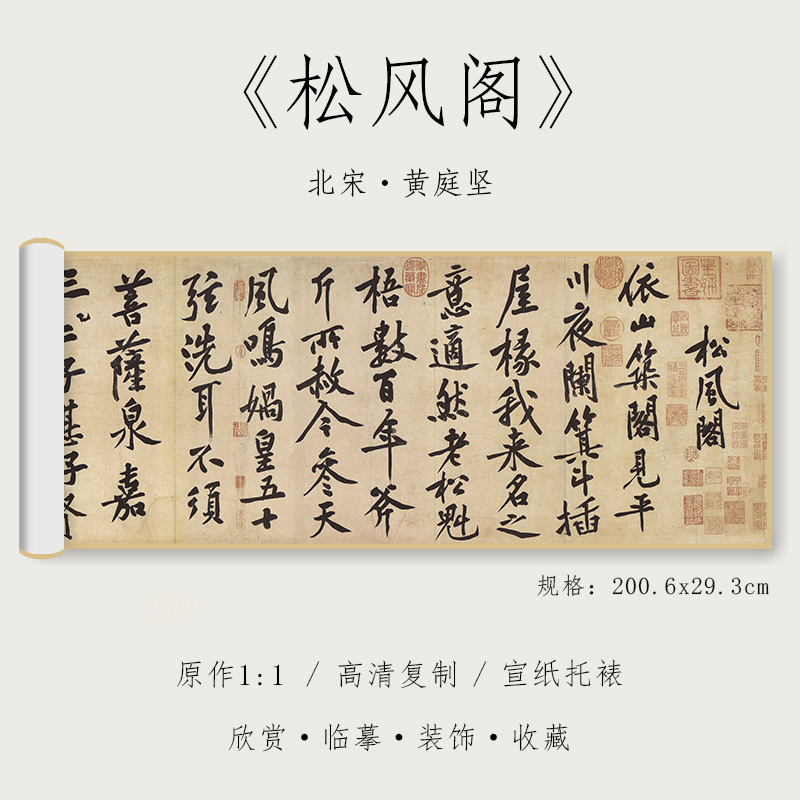 《松风阁》
北宋·黄庭坚
松風閣
依山築閣見平
川夜闌箕斗插
屋椽我来名之
意適然老松魁
梧數百年斧
斤所赦今參天
風鳴媧皇五十
弦洗耳不須
菩薩泉嘉
三二子甚好賢
规格：200.6x29.3cm
原作1:1 / 高清复制 / 宣纸托裱
欣赏·临摹·装饰·收藏